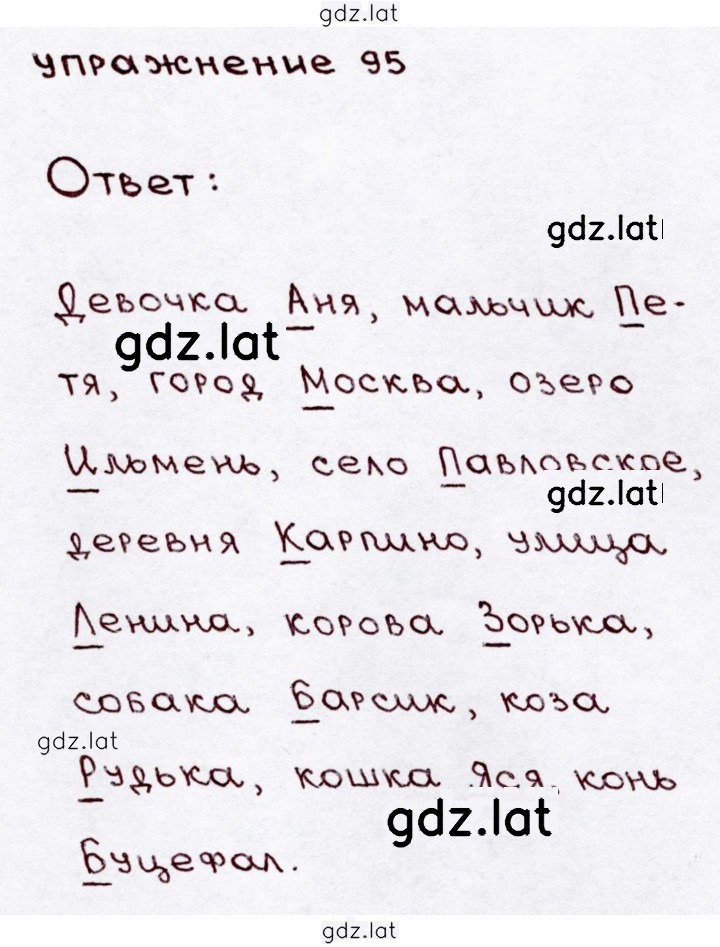 gdz.lat
упражнение 95
Ответ:
gdz.lat
Девочка Аня, мальчик Пе-
gdz.lat
тя, город Москва, озеро
Ильмень, село Павловское,
gdz.lat
деревня Карпино, улица
Ленина, корова Зорька,
собака Барсик, коза
gdz.lat
Рудька, кошка Яся, конь
gdz.lat
Буцефал.
gdz.lat